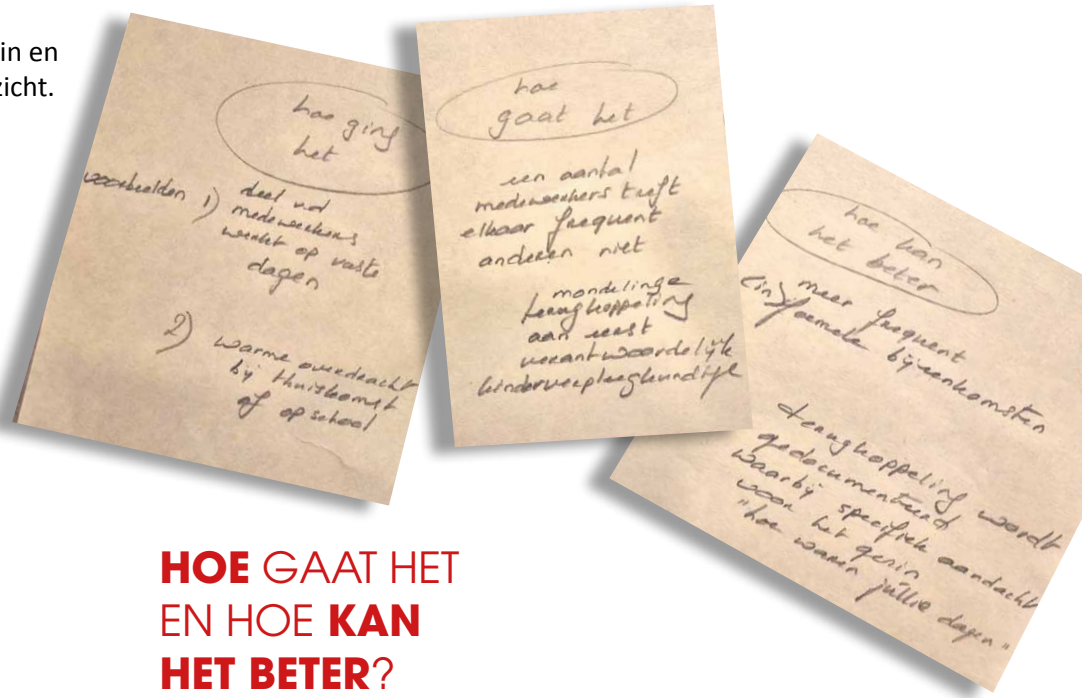 in en
zicht.
hoe ging
het
voorbeelden 1) deel vd
medewerkers
werkt op vaste
dagen
2) warme overdracht
bij thuiskomst
of op school
hoe
gaat het
een aantal
medewerkers treft
elkaar frequent
anderen niet
mondelinge
terugkoppeling
aan eerst
verantwoordelijk
kinderverpleegkundige
hoe kan
het beter
meer frequent
(in)formele bijeenkomsten
terugkoppeling wordt
gedocumenteerd
waarbij specifiek aandacht
voor het gezin
"hoe waren jullie dagen"
HOE GAAT HET
EN HOE KAN
HET BETER?